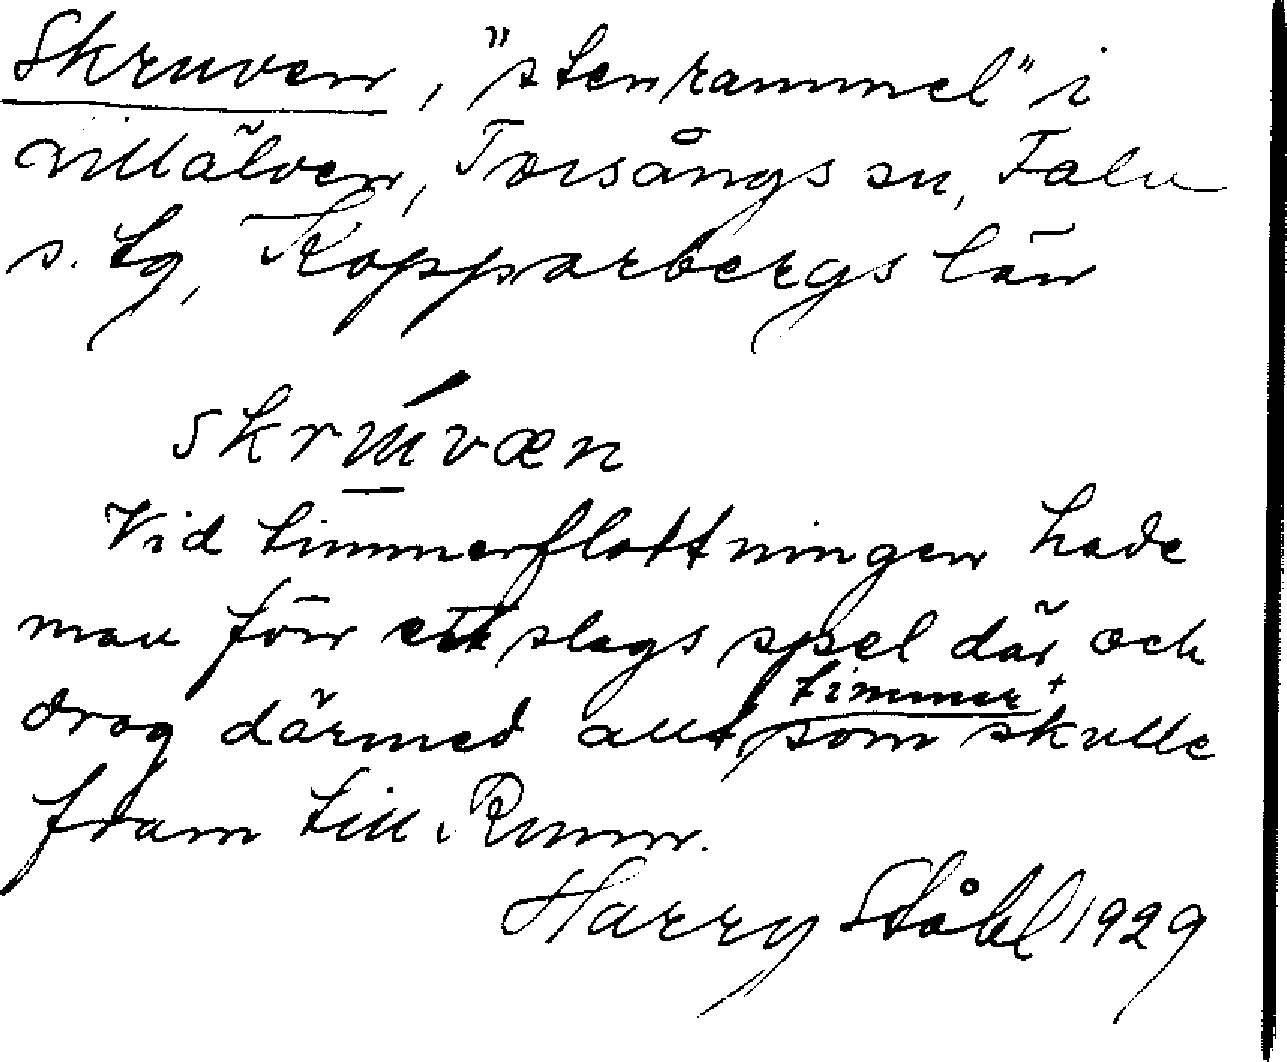 Skruven, "stenrammel" i
Lillälven, Torsångs sn, Falu
s. tg, Kopparbergs län
Vid timmerflottningen hade
man förr ett slags spel där och
drog därmed allt timmer som skulle
fram till Runn.
Harry Ståhl 1929